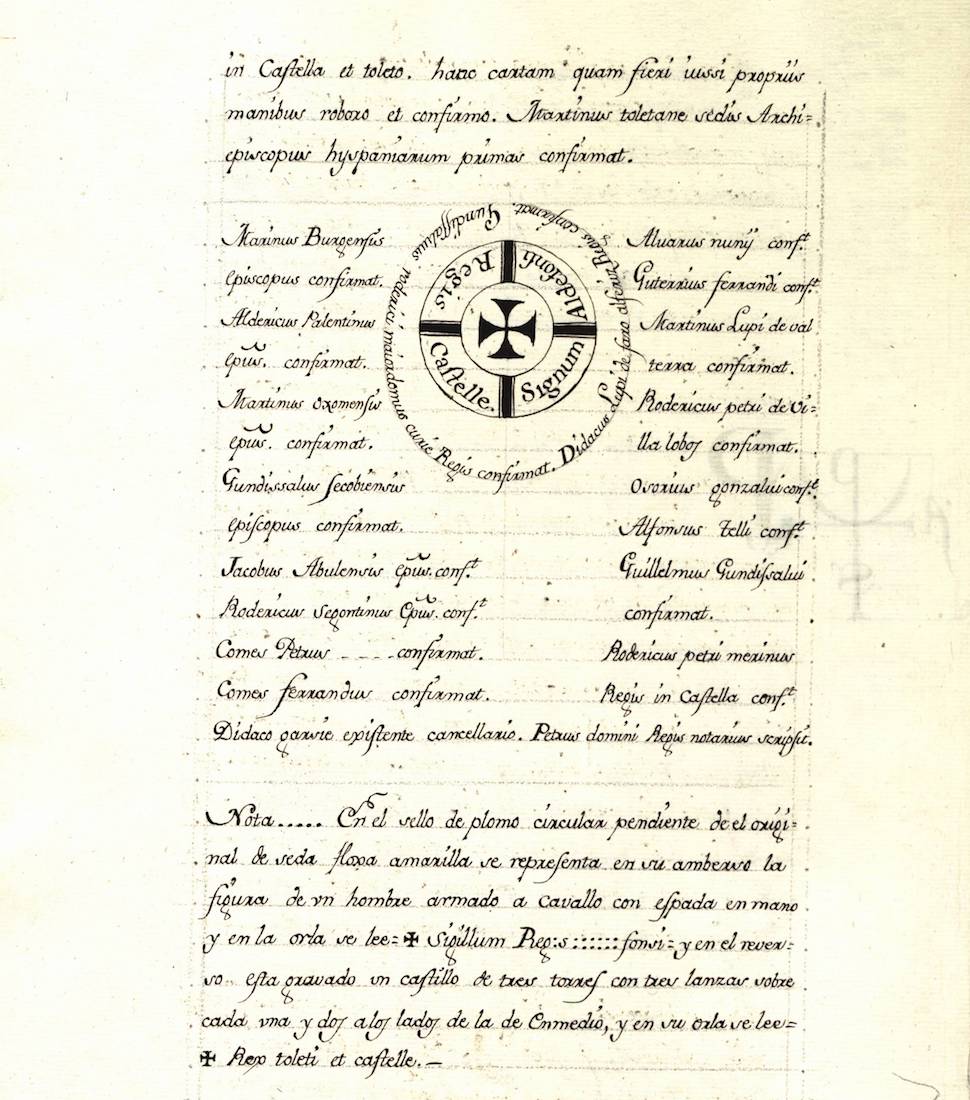 in Castella et toleto. hanc cartam quam fieri iussi propriis
manibus roboro et confirmo. Martinus toletane sedis Archi=
episcopus hyspaniarum primas confirmat.
Marinus Burgensis
episcopus confirmat.
Aldericus Palentinus
epũs. confirmat.
Martinus oxomensis
epũs. confirmat.
Gundissalus secobiensis
episcopus confirmat.
Jacobus Abulensis epũs. conf.t
Rodericus segontinus Epũs. conf.t
Comes Petrus _ _ _ _ confirmat.
Comes ferrandus confirmat.
Signum
Aldefonsi
Regis
Castelle.
Gundissalvus roderici maiordomus curie Regis confirmat.
Didacus Lupi de faro alferiz Regis confirmat.
Alvarus nunij conf.t
Guterrius ferrandi conf.t
Martinus Lupi de val
terra confirmat.
Rodericus petri de vi=
lla lobos confirmat.
Osorius gonzalui conf.t
Alfonsus Telli conf.t
Guillelmus Gundissalui
confirmat.
Rodericus petri merinus
Regis in Castella conf.t
Didaco garsie existente cancellario. Petrus domini Regis notarius scripsit.
Nota..... En el sello de plomo circular pendiente de el origi=
nal de seda floxa amarilla se representa en su amberso la
figura de vn hombre armado a cavallo con espada en mano
y en la orla se lee=✠ Sigillum Reg:s :::::: fonsi= y en el rever=
so esta gravado un castillo de tres torres con tres lanzas sobre
cada vna y dos a los lados de la de Enmedio, y en su orla se lee=
✠ Rex toleti et castelle.—